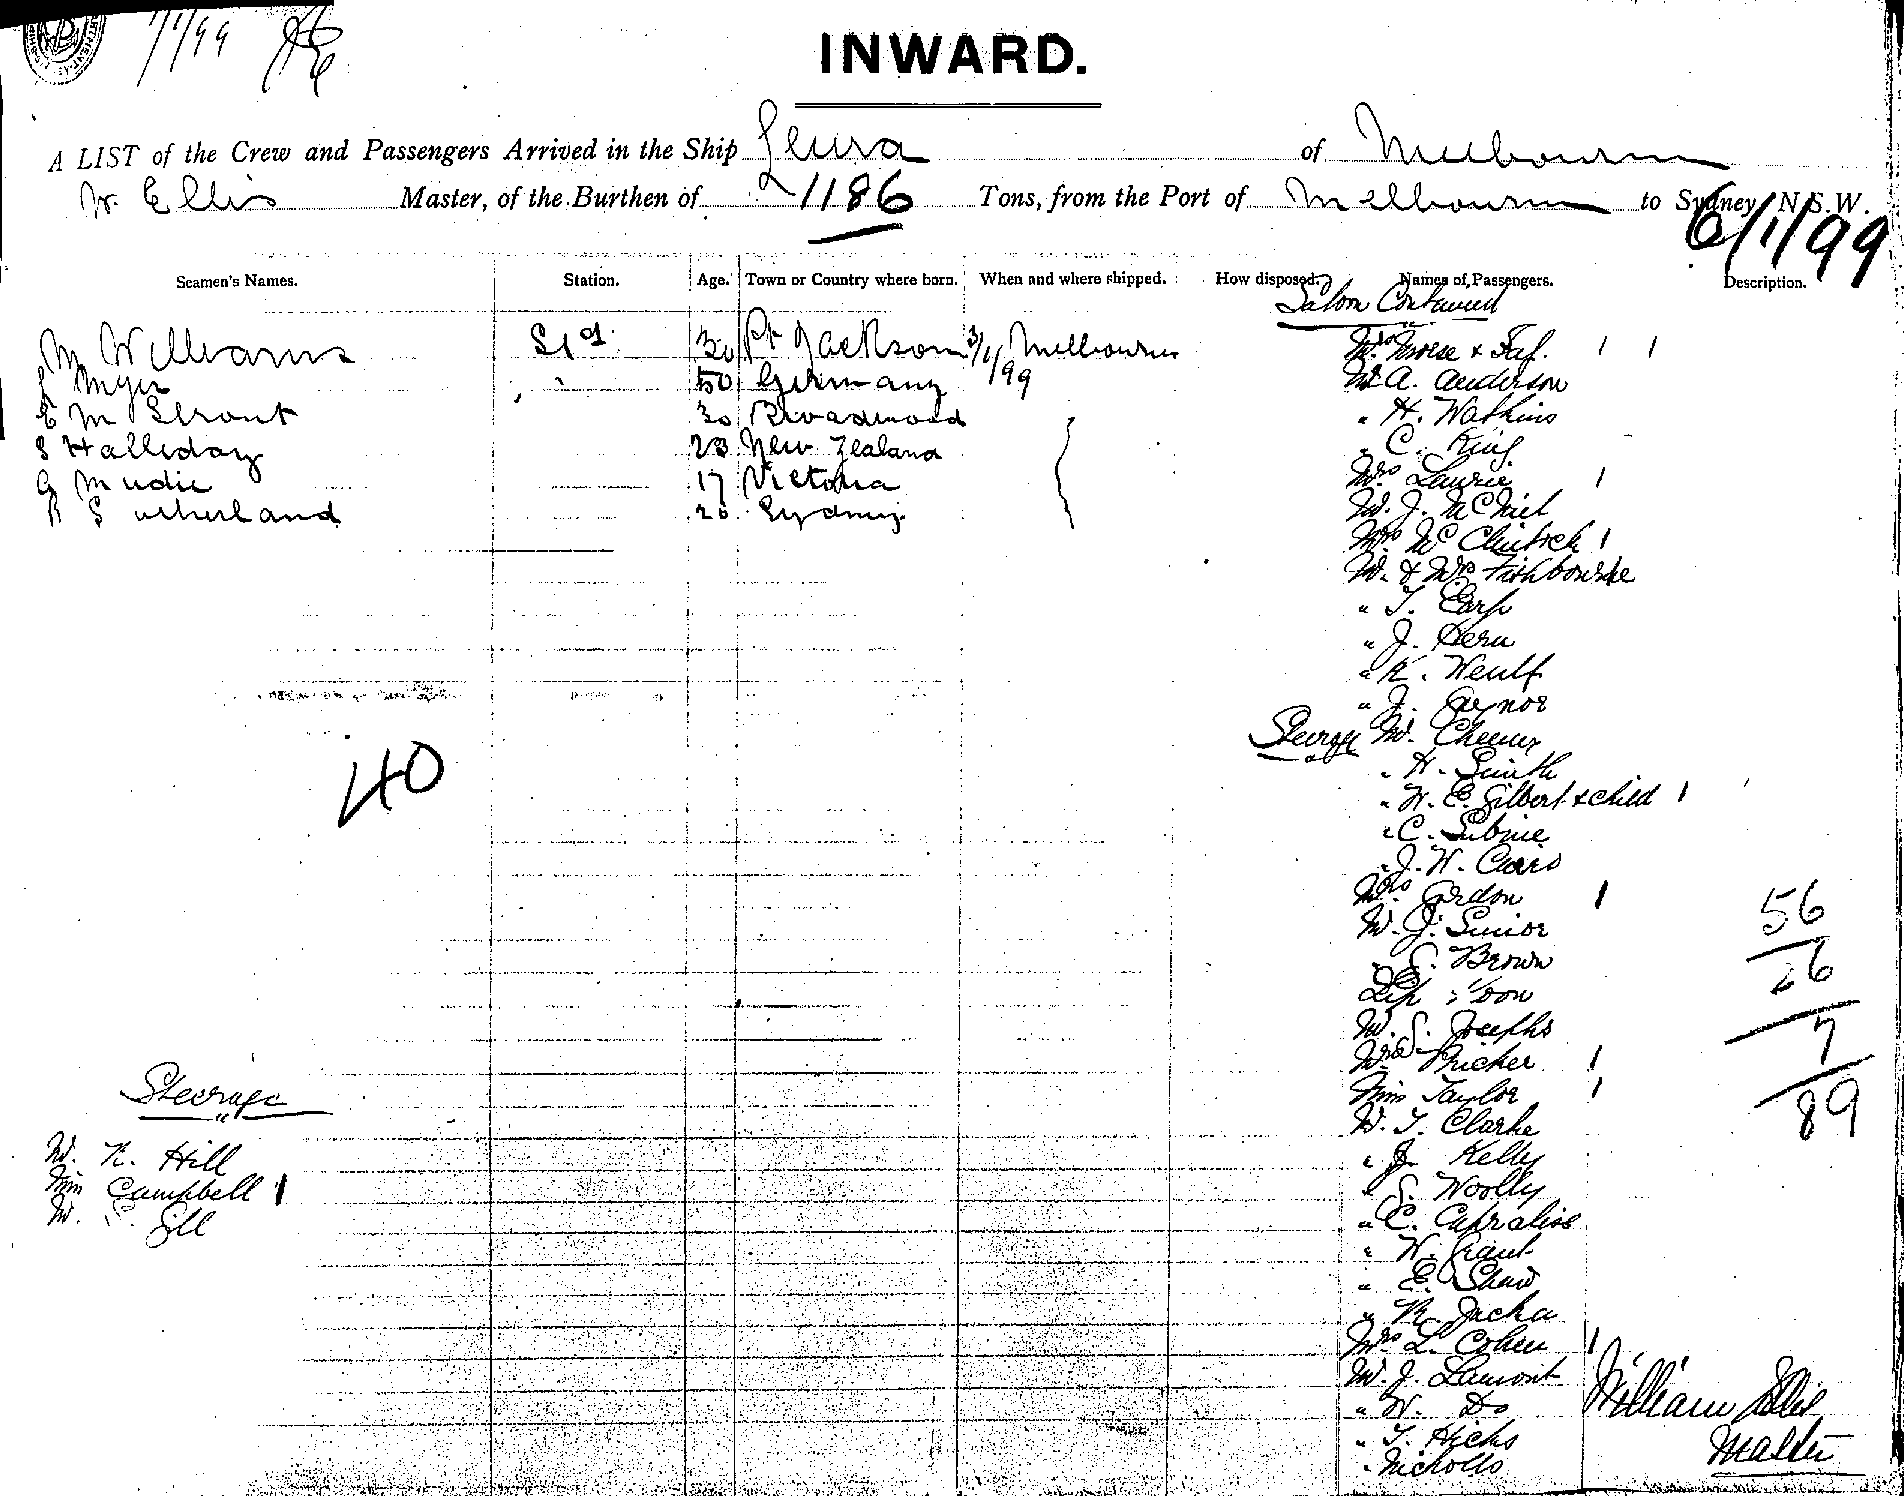 7/1/99
INWARD.
A LIST of the Crew and Passengers Arrived in the Ship Leura of Melbourne
W. Ellis Master, of the Burthen of 1186 Tons, from the Port of Melbourne to Sydney N.S.W.
6/1/99
Seamen's Names. Station. Age. Town or Country where born. When and where shipped. How disposed. Names of Passengers. Description.
Saloon Continued
M Williams Std 30 Pt Jackson 3/1/99 Melbourne
Myer " 50 Germany
E M 30 Broadwood
S Halleday 23 New Zealand
G Mudie 17 Victoria
R Sutherland 20 Sydney
40
Steerage
Mr. R. Hill
Miss Campbell 1
Mr. Gill
Mrs & Inf. 1 1
Mr A. Anderson
" H. Watkins
" C. King
Mrs Laurie 1
Mr. J. McNiel
Mrs Mc 1
Mr. & Mrs Fishbourne
" T. Earp
" J. Hern
" K.
" J. Gaynor
Steerage Mr.
" H. Smith
" W. E. Gilbert & child 1
" C.
" J. W. Cairs
Mrs Gordon 1
Mr. J. Senior
" S. Brown
Mr. S. Josephs
Mrs Pricher 1
Miss Taylor 1
Mr. T. Clarke
" J. Kelly
" S. Woolly
" C. Capralise
" W. Grant
" E. Shaw
" R. Jacka
Mrs L. Cohen 1
Mr. J. Lamont
" W. Do
" T. Hicks
" Nicholls
56
26
7
89
William Ellis
Master